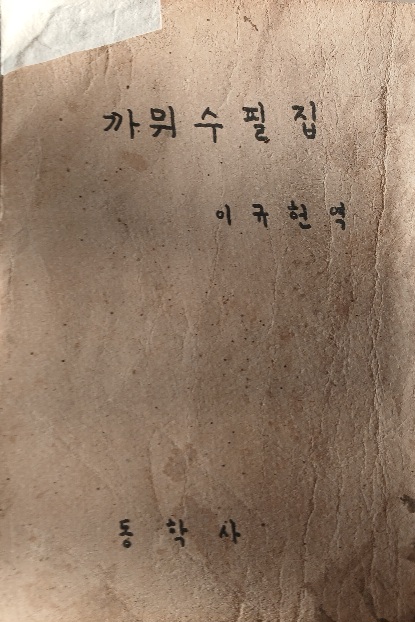 까뮈 수필집
이규헌 역
동학사